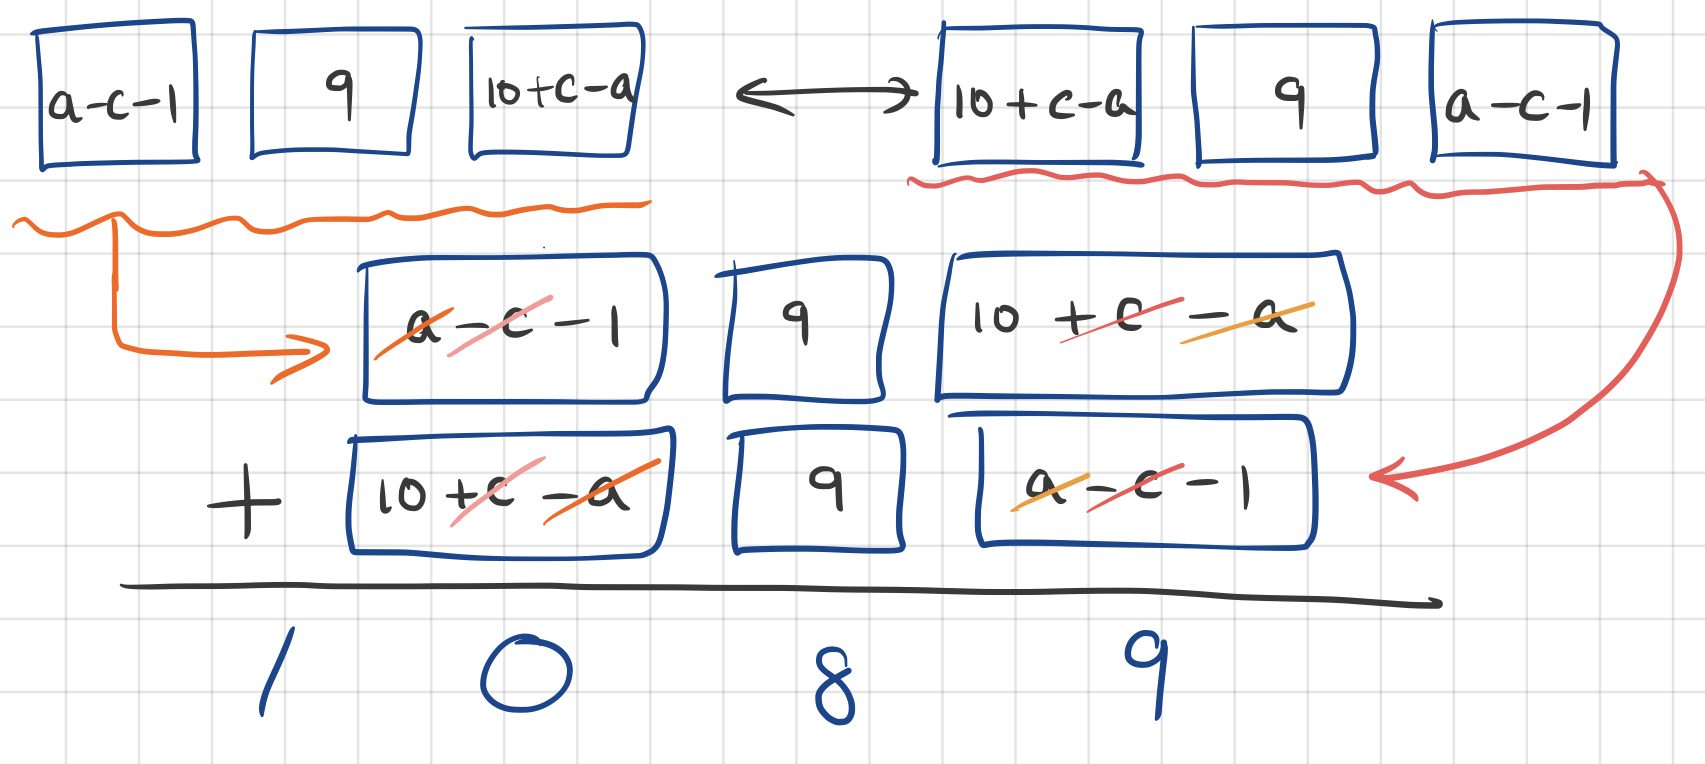 a-c-1 9 10+c-a ↔ 10+c-a 9 a-c-1
a-c-1 9 10+c-a
+ 10+c-a 9 a-c-1
1 0 8 9